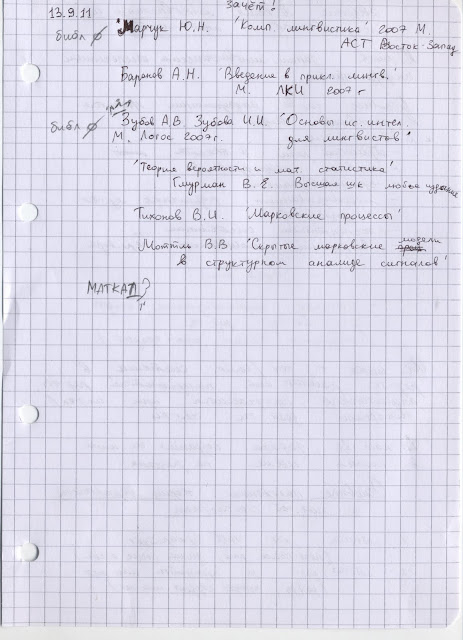 13.9.11 Зачёт!
библ ∅ *Марчук Ю.Н. 'Комп. лингвистика' 2007 М.
АСТ Восток-Запад
Баранов А.Н. 'Введение в прикл. лингв.'
М. ЛКИ 2007 г
библ ∅ Зубов А.В. Зубова И.И. 'Основы ис. интел.
М. Логос 2007г. для лингвистов'
'Теория вероятности и мат. статистика'
Гмурман В.Е. Высшая шк любое издание
Тихонов В.И. 'Марковские процессы'
Моттль В.В 'Скрытые марковские модели
в структурном анализе сигналов'
МАТКАП?